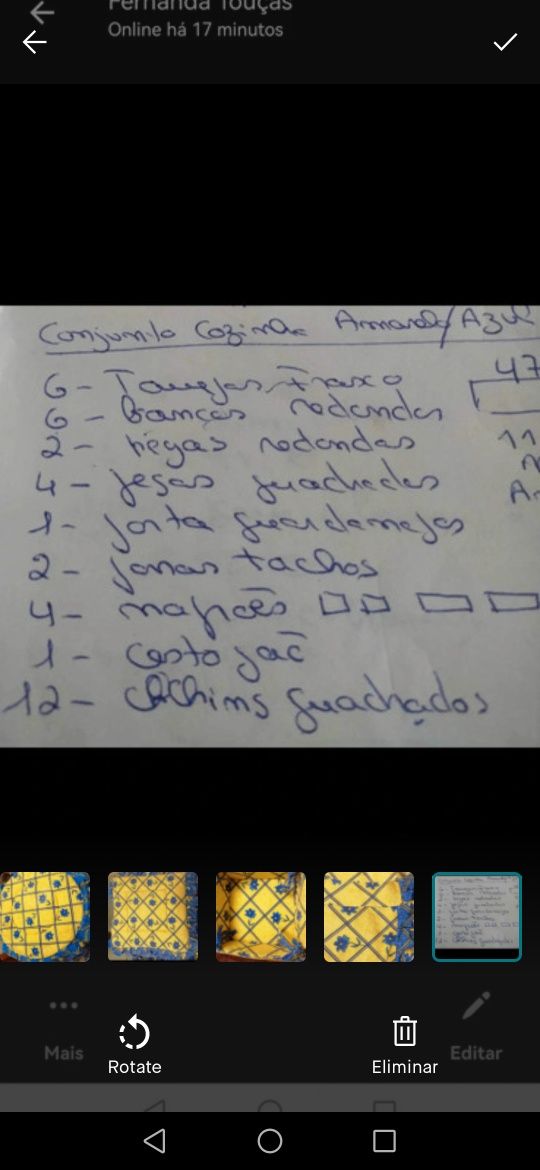 Fernanda Touças
Online há 17 minutos
Conjunto Cozinha Amarelo/Azul
6 - Frasco
47
6 - bancos redondos
2 - pegas redondas
11
4 - pegas quadradas
1 - porta guardanapos
2 - panos tachos
4 - naprões
1 - cesto pão
12 - quadrados
Mais
Rotate
Eliminar
Editar